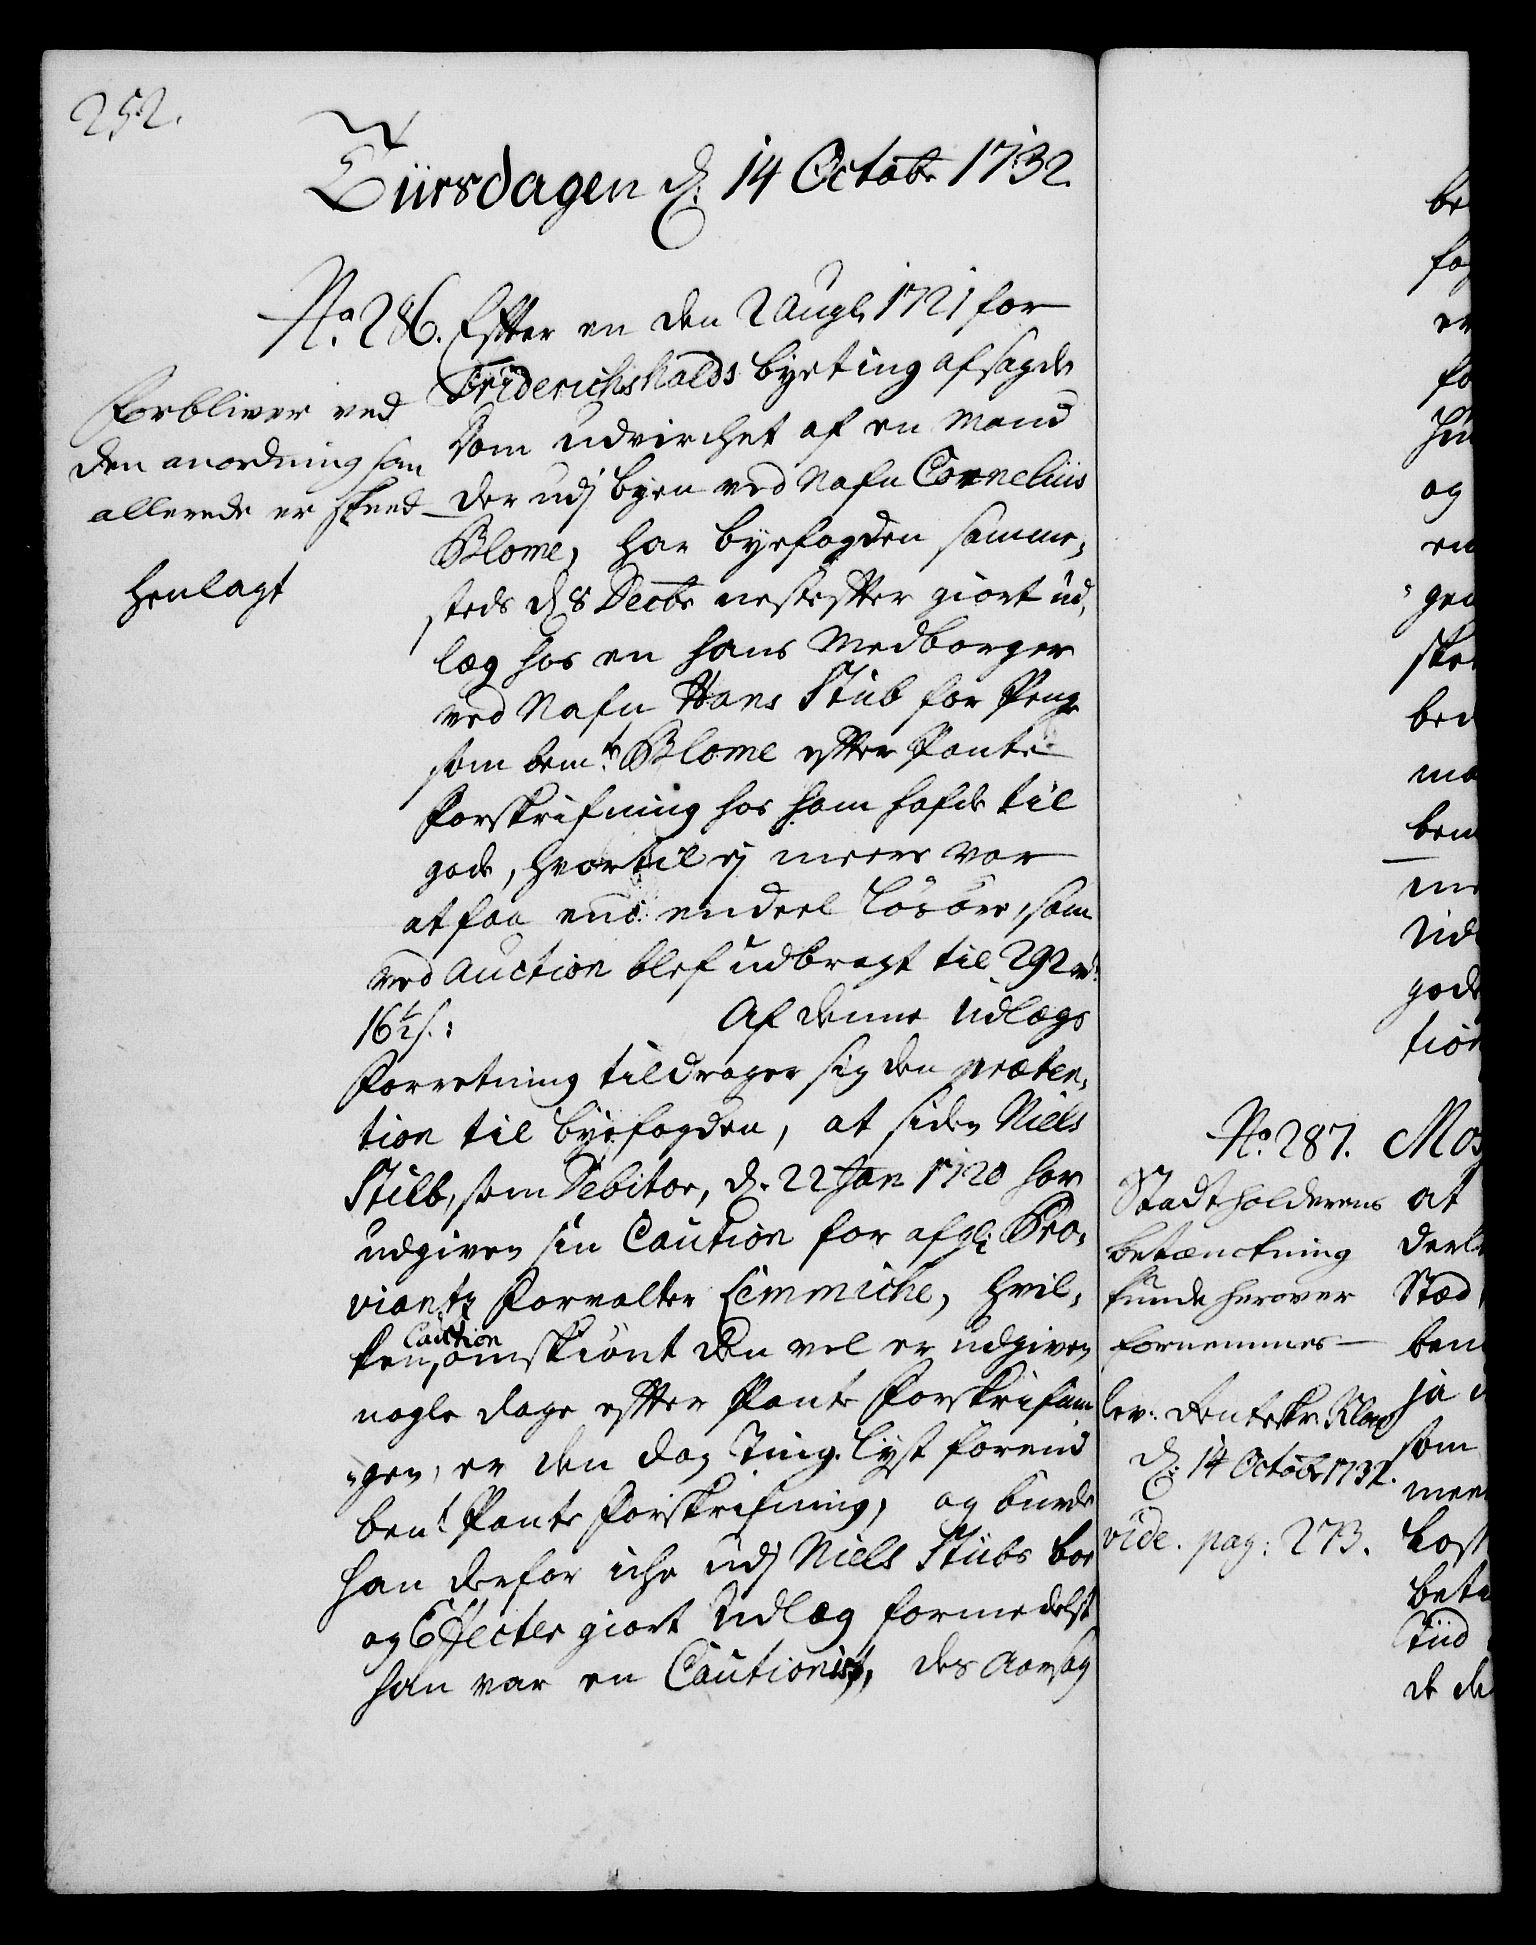 252.
Tiirsdagen d. 14 Octobr 1732.
No. 286. Efter en den 2 Augl. 1721 for
Friderichshalds byeting afsagde
Dom udvirchet af en Mand
der udj byen ved Nafn Cornelius
Blome, har byefogden samme,
steds d. 8 Decbr nestefter giort ud,
læg hos en hans Medborger
ved Nafn Hans Stub for Penge
som bemte Blome efter Pante
Forskrifning hos ham hafde til
gode, hvortil ej meere var
at faa end endeel løsøre, som
ved Auction blef udbragt til 292 rd:
16½ s.: Af denne Udlægs
Forretning tildrager sig den præten,
tion til byefogden, at siden Niels
Stub, som Debitor, d. 22 Jan 1720 har
udgiven sin Caution for afgl: Pro,
viantz Forvalter Lemmiche, hvil,
ken Caution, omskiønt den vel er udgiven
nogle dage efter Pante Forskrifnin
gen, er den dog Ting-lyst førend
bemt Pante Forskrifning, og burde
han derfor iche udj Niels Stubs boe
og Effecter giort Udlæg formedelst
han var en Cautionist, des Aarsag
Forbliver ved
den anordning som
allerede er skeed
henlagt
No. 287. Mos
Stadtholderens
betænckning
kunde herover
fornemmes
lev: Renteskr. Klow
d. 14 Octobr 1732.
vide. pag: 273.